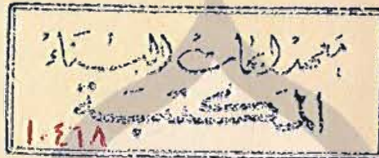 معهد ابحاث البناء
المكتبة
١٠٤٦٨